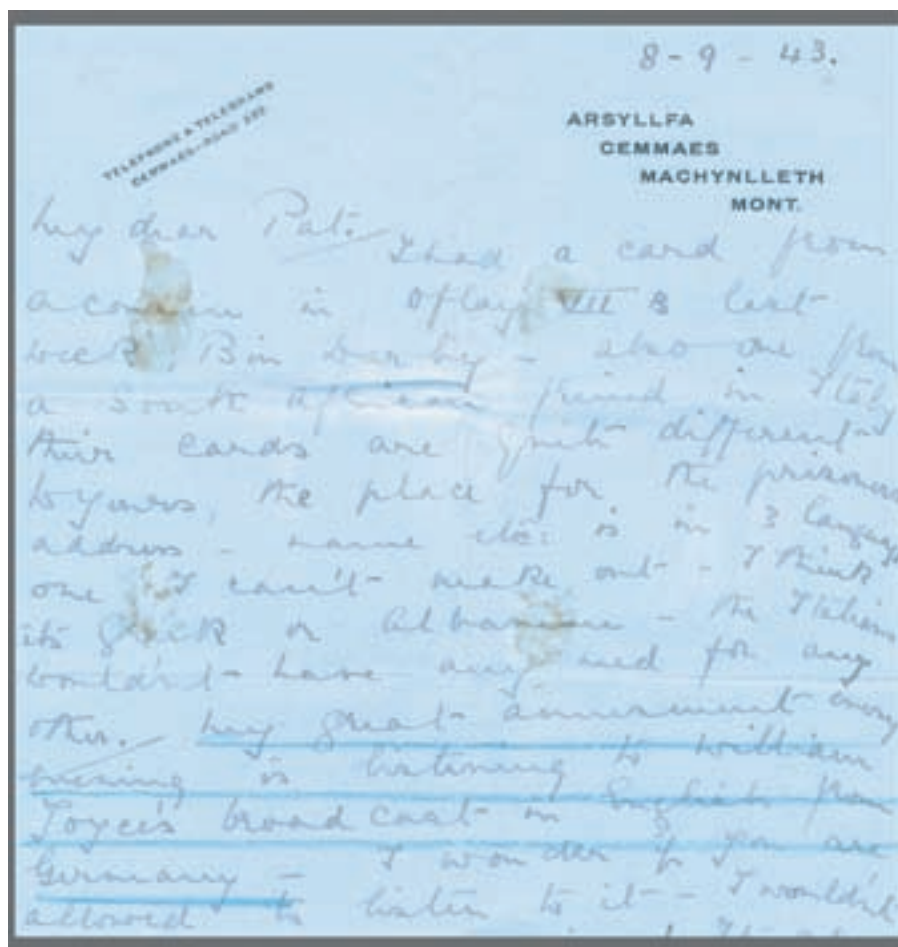 8 - 9 - 43.
TELEPHONE & TELEGRAMS
CEMMAES-ROAD
ARSYLLFA
CEMMAES
MACHYNLLETH
MONT.
My dear Pat. I had a card from
a cousin in Oflag VIII B last
week, Bin - also one from
a South African friend in Italy
their cards are quite different
to yours, the place for the prisoners
address - name etc: is in 3 languages
one I can't make out - I think
its Greek or Albanian - the Italians
wouldn't have any need for any
other. My great amusement every
evening is listening to William
Joyce's broadcast in English from
Germany - I wonder if you are
allowed to listen to it - I wouldn't